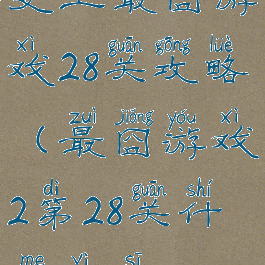 史上最囧游
xì guān gōng lüè
戏28关攻略
zuì jiǒng yóu xì
（最囧游戏
dì guān shí
2第28关什
me yì sī